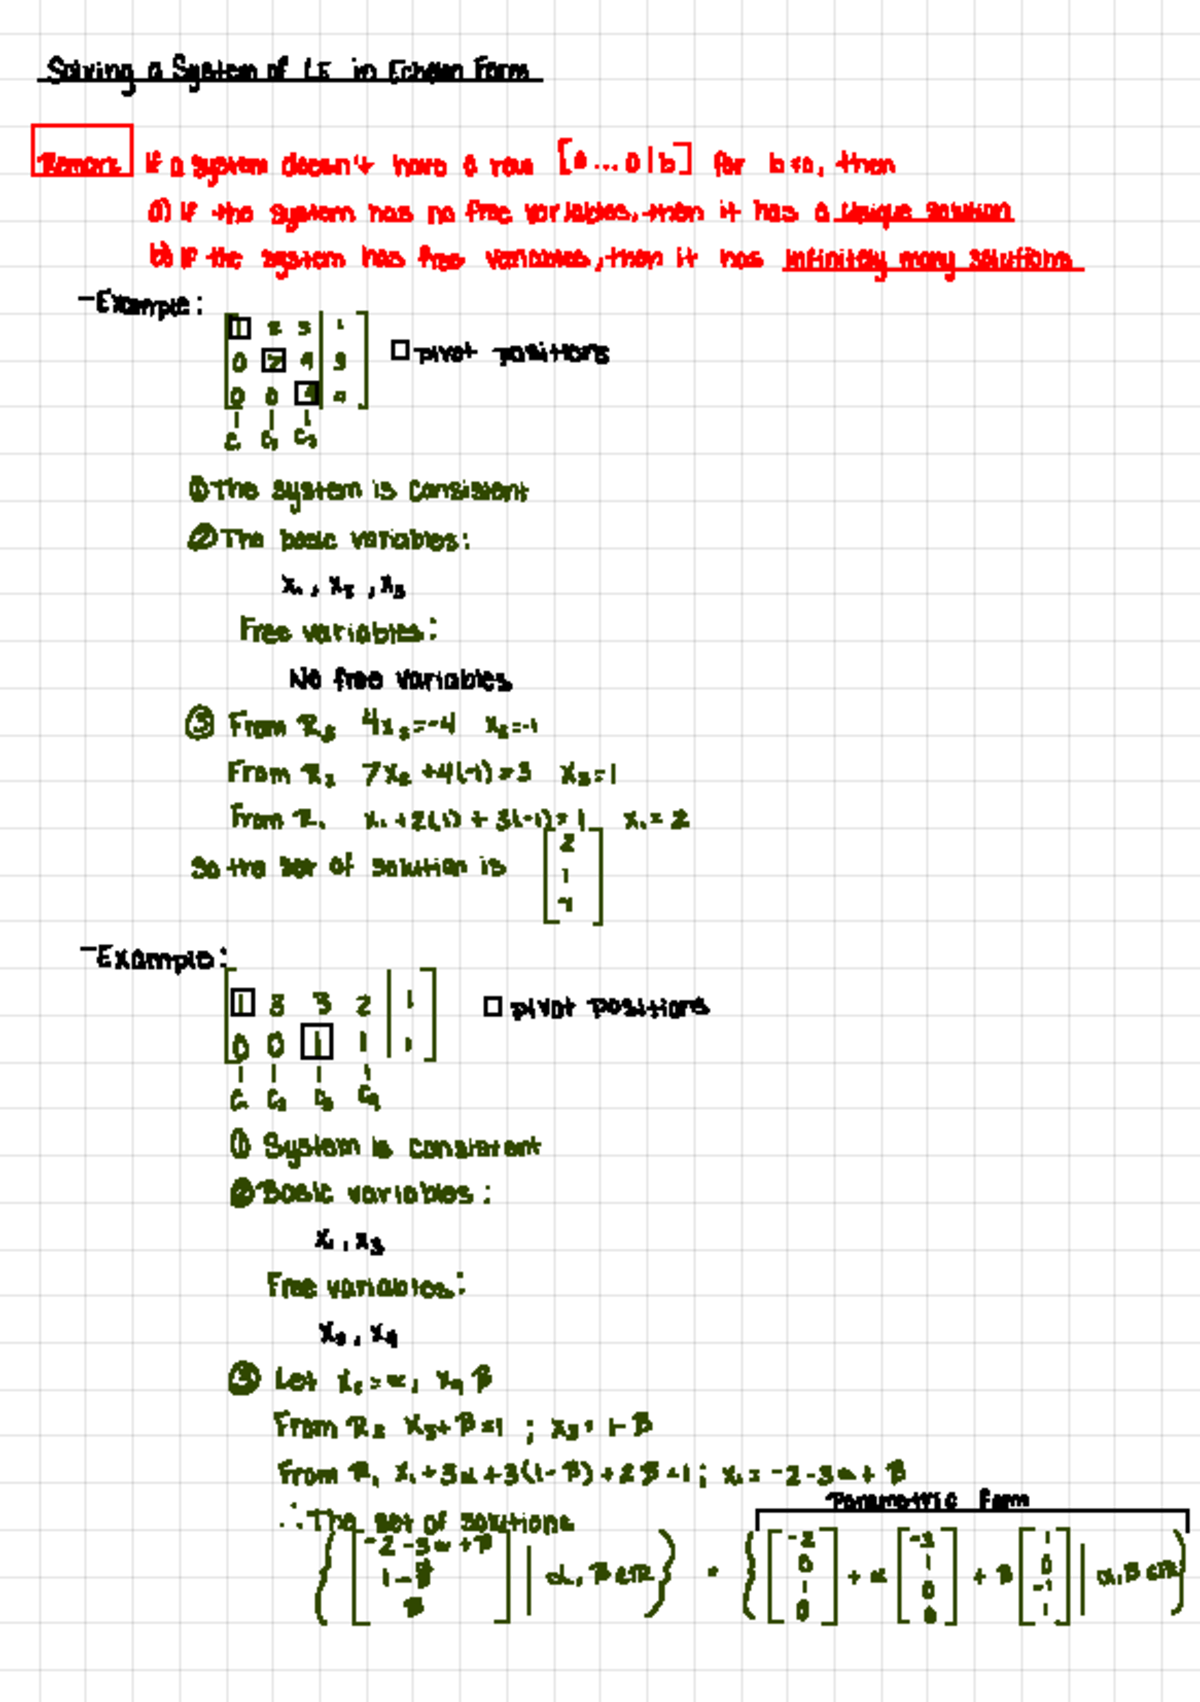 Solving a System of LE in Echelon Form
Remark If a system doesn't have a row [0...0|b] for b≠0, then
a) If the system has no free variables, then it has a unique solution
b) If the system has free variables, then it has infinitely many solutions
-Example:
1 2 3 | 1
0 7 4 | 3 □ pivot positions
0 0 4 |
C₁ C₂ C₃
① The system is consistent
② The basic variables:
x₁, x₂, x₃
Free variables:
No free variables
③ From R₃ 4x₃=-4 x₃=-1
From R₂ 7x₂ +4(-1)=3 x₃=1
From R₁ x₁ +2(1) + 3(-1)=1 x₁= 2
So the set of solution is [2
1
-1]
-Example:
1 3 3 2 | 1 □ pivot positions
0 0 1 1 | 1
C₁ C₂ C₃ C₄
① System is consistent
② Basic variables:
x₁, x₃
Free variables:
x₂, x₄
③ Let x₂=α, x₄ β
From R₂ x₃+β=1 ; x₃= 1-β
From R₁ x₁+3α+3(1-β)+2β=1; x₁= -2-3α+β
Parametric Form
∴ The set of solutions
{[-2-3α+β
1-β
β] | α, β∈ℝ} = {[-2
0
1
0] + α[-3
1
0
0] + β[1
0
-1
1] | α,β∈ℝ}